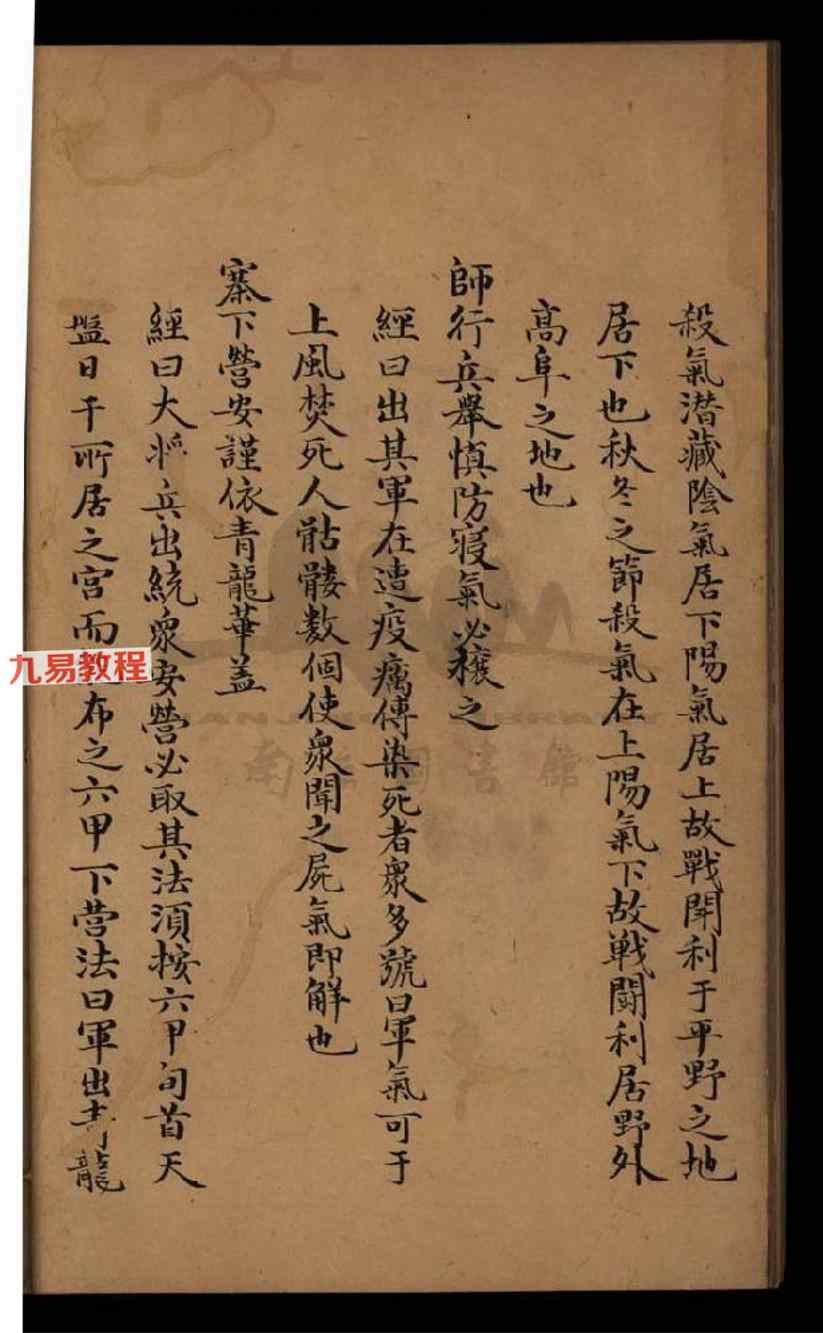 殺氣潜藏陰氣居下陽氣居上故戰鬪利于平野之地
居下也秋冬之節殺氣在上陽氣下故戰鬪利居野外
高阜之地也
師行兵舉慎防寑氣必穰之
經曰出其軍在遭疫癘傳染死者衆多號曰軍氣可于
上風焚死人骷髏数個使衆聞之屍氣即解也
寨下營安謹依青龍華盖
經曰大將兵出統衆安營必取其法湏按六甲旬首天
盤日干所居之宮而布之六甲下营法曰軍出青龍
九易教程
南 圖書館